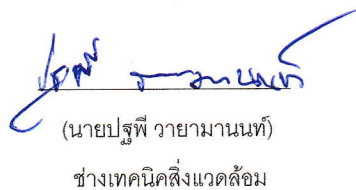 (นายปฐพี วายามานนท์)
ช่างเทคนิคสิ่งแวดล้อม